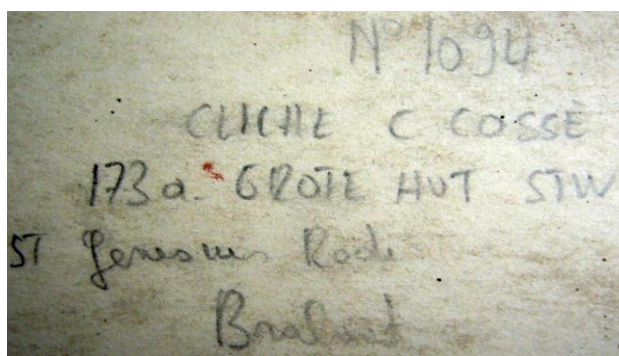 N° 1094
CLICHE C COSSE
173a. GROTE HUT STW
ST Genesius Rode
Brabant